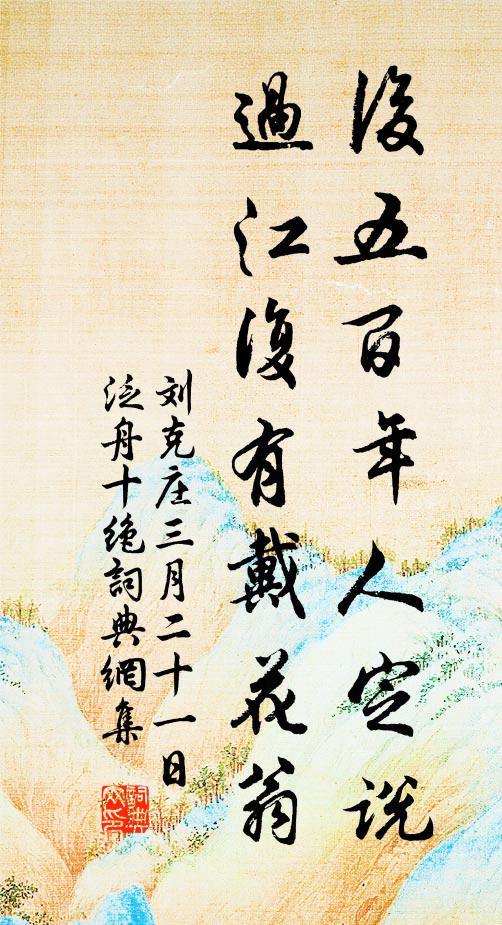 後五百年人定説
過江復有戴花翁
刘克庄三月二十一日
泛舟十绝詞典網集